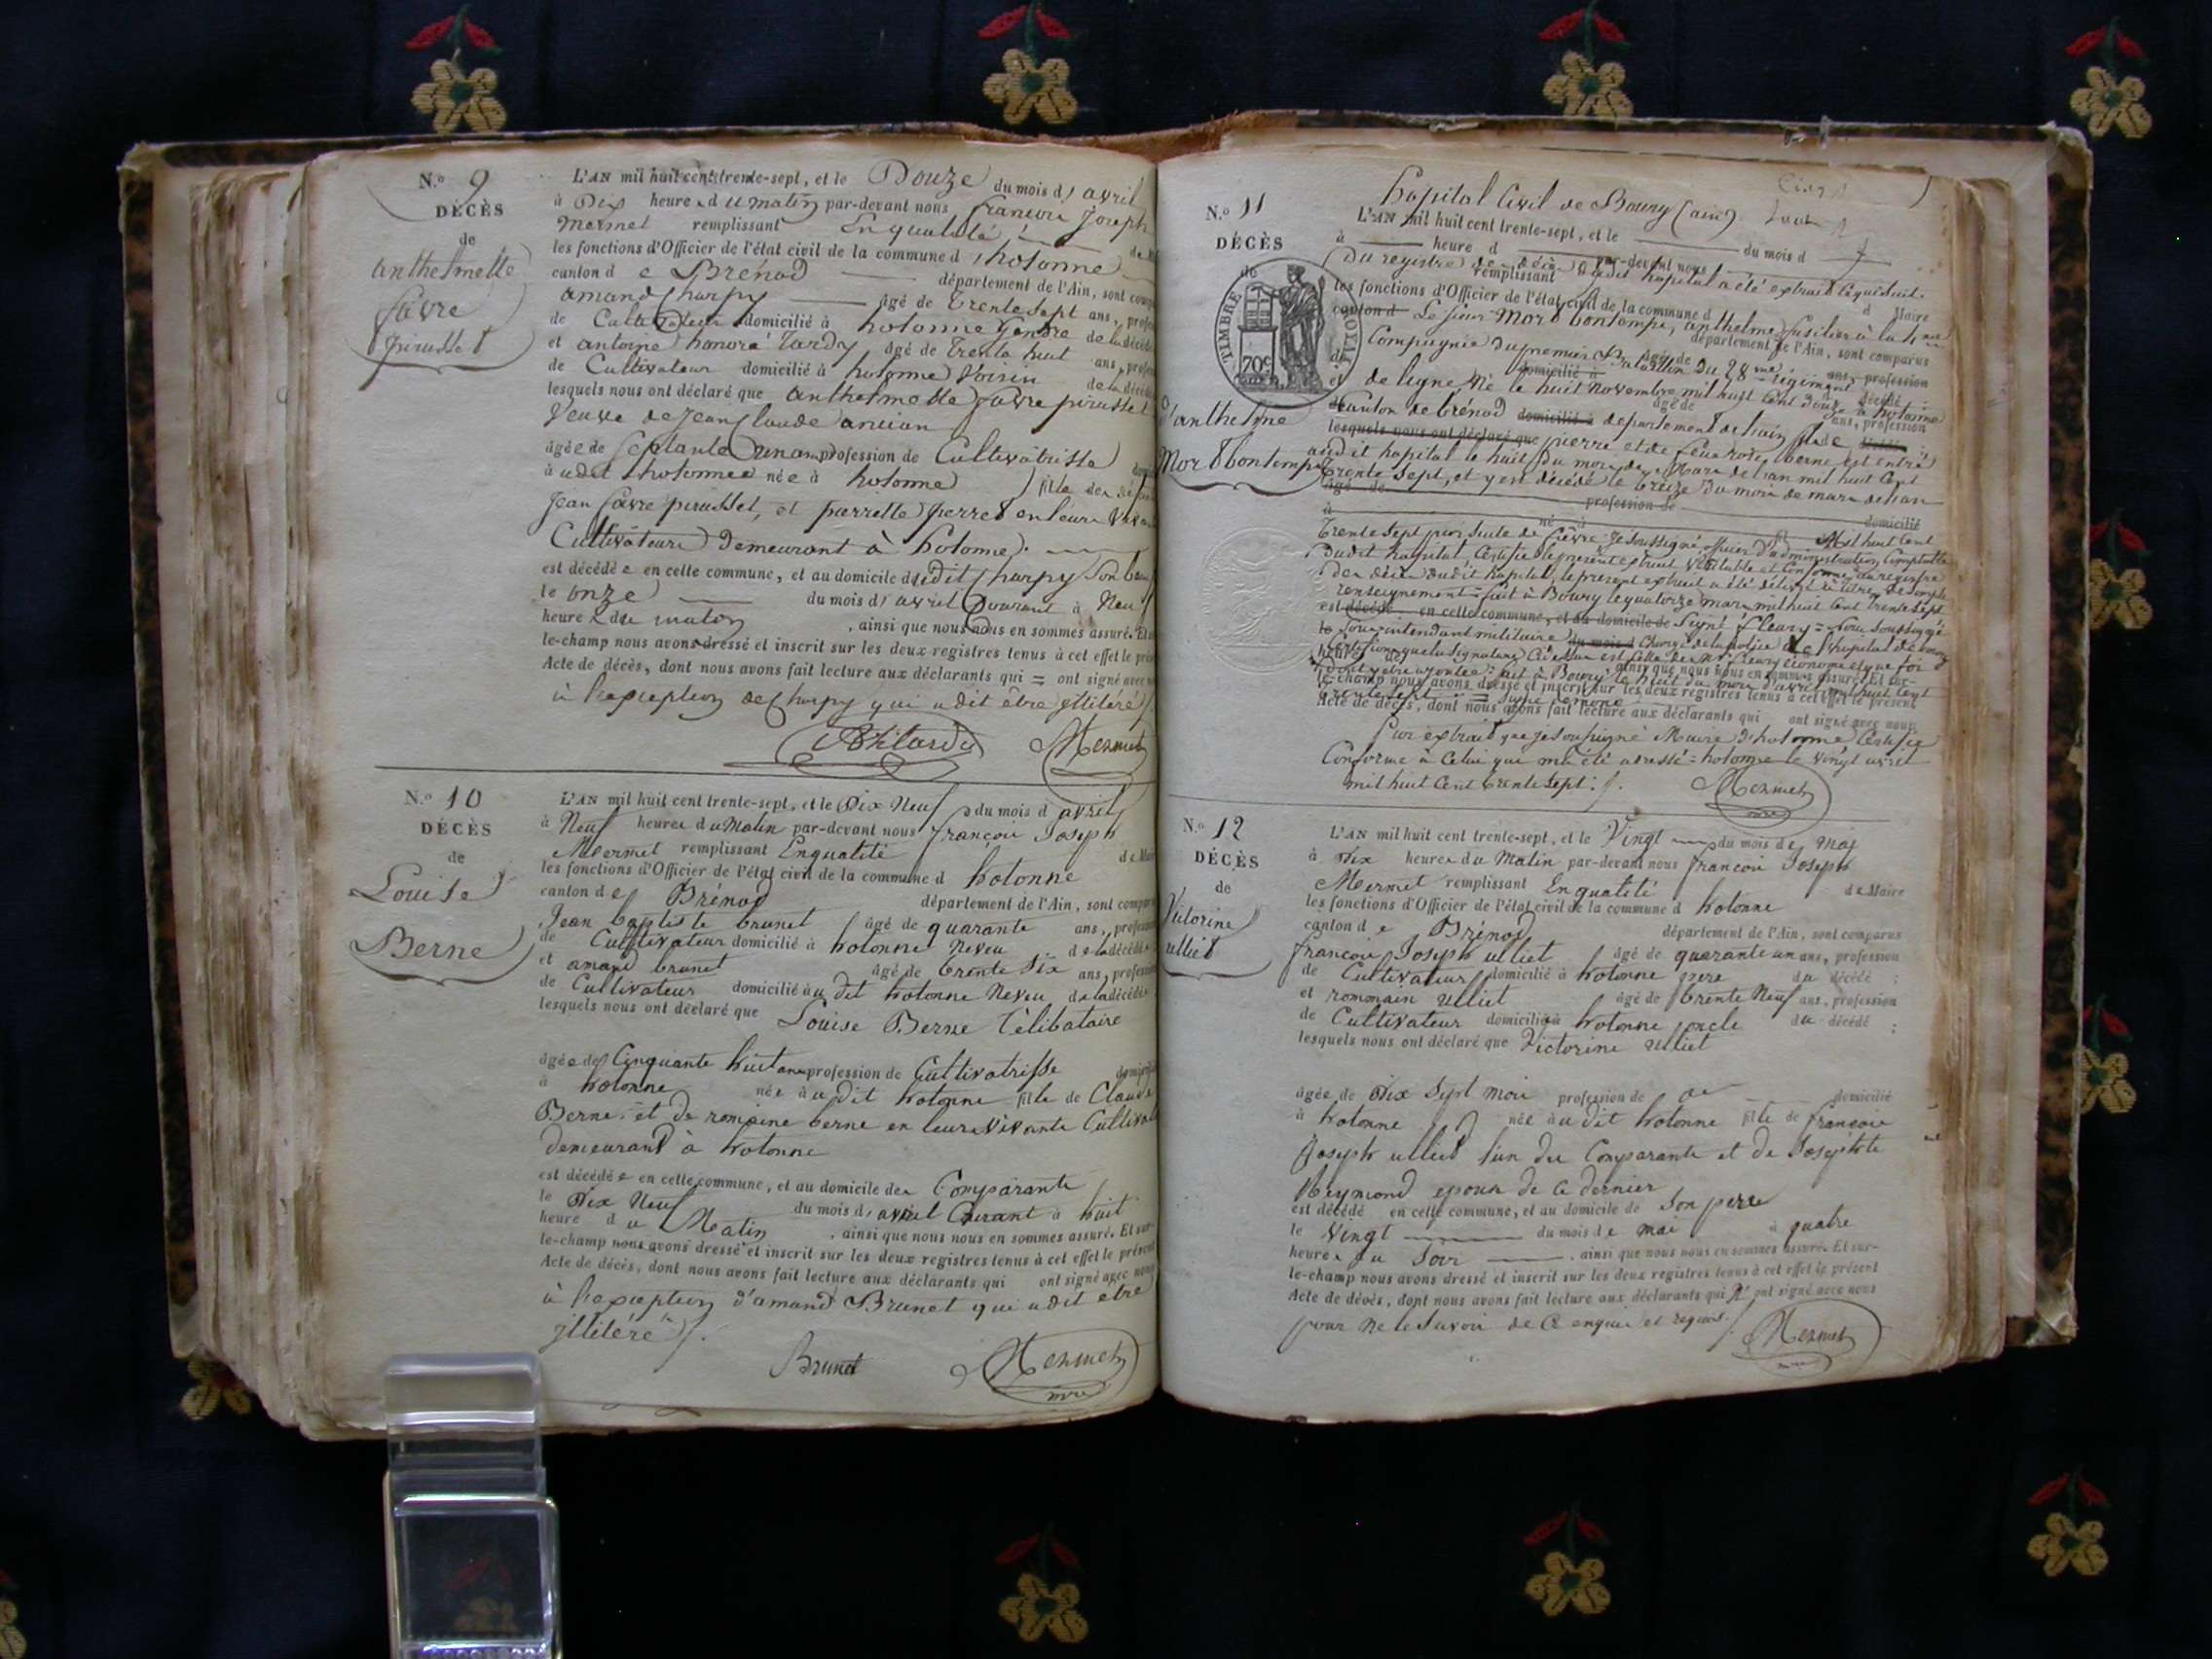 N.° 9
DÉCÈS
de
anthelmette
favre
pirusset
L'AN mil huit cent trente-sept, et le Douze du mois d'avril
à Dix heures du matin par-devant nous françois Joseph
Mermet remplissant En qualité de
les fonctions d'Officier de l'état civil de la commune d'hotonne
canton de Brénod département de l'Ain, sont
amand Charpy âgé de trente sept ans,
de Cultivateur domicilié à hotonne Gendre de la
et antoine honoré tardy âgé de trente huit ans,
de Cultivateur domicilié à hotonne Voisin de la
lesquels nous ont déclaré que anthelmette favre pirusset
Veuve de Jean Claude ancian
âgée de Septante un ans profession de Cultivatrisse
à udit hotonne née à hotonne fille de
Jean favre pirusset, et pierrette perret en leurs
Cultivateurs Demeurant à hotonne.
est décédée en cette commune, et au domicile dudit Charpy Son
le onze du mois d'avril Courant à Neuf
heures du matin, ainsi que nous nous en sommes assuré. Et
le-champ nous avons dressé et inscrit sur les deux registres tenus à cet effet le
Acte de décès, dont nous avons fait lecture aux déclarants qui = ont signé avec
à l'exception de Charpy qui a dit être illitéré
Mermet
N.° 10
DÉCÈS
de
Louise
Berne
L'AN mil huit cent trente-sept, et le Dix Neuf du mois d avril
à Neuf heures du Matin par-devant nous françois Joseph
Mermet remplissant En qualité de
les fonctions d'Officier de l'état civil de la commune d hotonne
canton de Brénod département de l'Ain, sont
Jean baptiste brunet âgé de quarante ans,
de Cultivateur domicilié à hotonne Neveu de la décédée
et amand brunet âgé de trente Six ans, profession
de Cultivateur domicilié au dit hotonne Neveu de la décédée
lesquels nous ont déclaré que Louise Berne Célibataire
âgée de Cinquante huit ans profession de Cultivatrisse
à hotonne née au dit hotonne fille de Claude
Berne et de romaine berne en leurs Vivants
demeurant à hotonne
est décédée en cette commune, et au domicile des Comparants
le Dix Neuf du mois d'avril Courant à huit
heure du Matin, ainsi que nous nous en sommes assuré. Et sur-
le-champ nous avons dressé et inscrit sur les deux registres tenus à cet effet le présent
Acte de décès, dont nous avons fait lecture aux déclarants qui ont signé avec nous
à l'exception d'amand Brunet qui a dit être
illitéré
Brunet Mermet
mre
hopital Civil de Bourg (ain)
N.° 11
DÉCÈS
de
TIMBRE ROYAL
70c
d'anthelme
Mort bontemps
L'AN mil huit cent trente-sept, et le du mois d
à heure d par-devant nous
Du registre de décès dudit hopital a été extrait ce qui suit.
remplissant
les fonctions d'Officier de l'état civil de la commune d Maire
canton d Le sieur Mort bontemps, anthelme fusilier à la
département de l'Ain, sont comparus
Compagnie du premier Bataillon Du 28me régiment
âgé de ans, profession
domicilié à
de ligne Né le huit Novembre mil huit Cent douze à hotonne
Canton de brénod domicilié à département de l'ain fils de
lesquels nous ont déclaré que pierre et de berne est entré
audit hopital le huit Du mois de Mars de l'an mil huit Cent
trente Sept, et y est décédé le treize Du mois de mars de l'an
âgé de profession de
domicilié
Mil huit Cent
trente Sept par Suite de fièvre. Je Soussigné officier D'administration Comptable
dudit hopital Certifie le présent extrait Véritable et Conforme au registre
de décès dudit hopital, le présent extrait a été délivré à titre de Simple
renseignement. fait à Bourg le quatorze mars mil huit Cent trente Sept
est décédé en cette commune, et au domicile de Signé fleury = Nous Soussigné
le Sous-intendant militaire du mois d Chargé de la police de l'hopital de bourg
Certifions que la Signature Ci dessus est Celle de Mr fleury économe et que foi
ainsi que nous nous en sommes assuré. Et sur-
le-champ nous avons dressé et inscrit sur les deux registres tenus à cet effet le présent
Acte de décès, dont nous avons fait lecture aux déclarants qui ont signé avec nous
Pour extrait que je soussigné Maire d'hotonne Certifie
Conforme à Celui qui m'a été adressé = hotonne le vingt avril
mil huit Cent trente Sept
Mermet
mre
N.° 12
DÉCÈS
de
Victorine
ulliet
L'AN mil huit cent trente-sept, et le Vingt du mois de Mai
à Dix heures du Matin par-devant nous françois Joseph
Mermet remplissant En qualité de Maire
les fonctions d'Officier de l'état civil de la commune d hotonne
canton de Brénod département de l'Ain, sont comparus
françois Joseph ulliet âgé de quarante un ans, profession
de Cultivateur domicilié à hotonne pere du décédé ;
et rommain ulliet âgé de trente Neuf ans, profession
de Cultivateur domicilié à hotonne oncle du décédé ;
lesquels nous ont déclaré que Victorine ulliet
âgée de Dix Sept Mois profession de domicilié
à hotonne née au dit hotonne fille de françois
Joseph ulliet l'un des Comparants et de Josephte
Reymond epouse de Ce dernier
est décédé en cette commune, et au domicile de Son pere
le Vingt du mois de mai à quatre
heures du Soir, ainsi que nous nous en sommes assuré. Et sur-
le-champ nous avons dressé et inscrit sur les deux registres tenus à cet effet le présent
Acte de décès, dont nous avons fait lecture aux déclarants qui n' ont signé avec nous
pour ne le Savoir de Ce enquis et requis.
Mermet